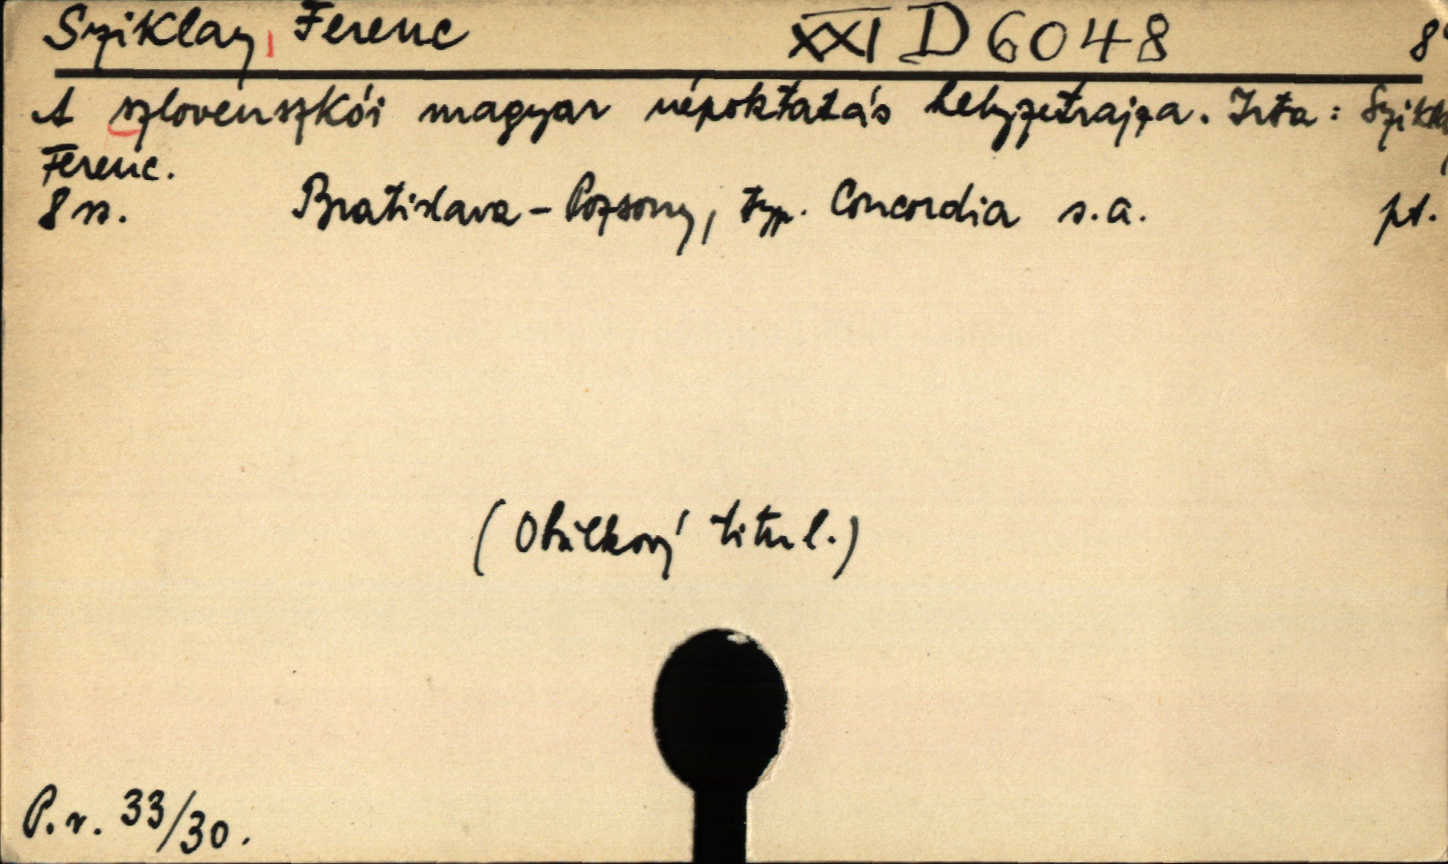 Sziklay, Ferenc XXI D 6048 8°
A szlovenszkói magyar népoktatás helyzetrajza. Irta: Szikla
Ferenc.
8 s. Bratislava - Pozsony, typ. Concordia s.a. pt.
(Obálkový titul.)
P.r. 33/30.